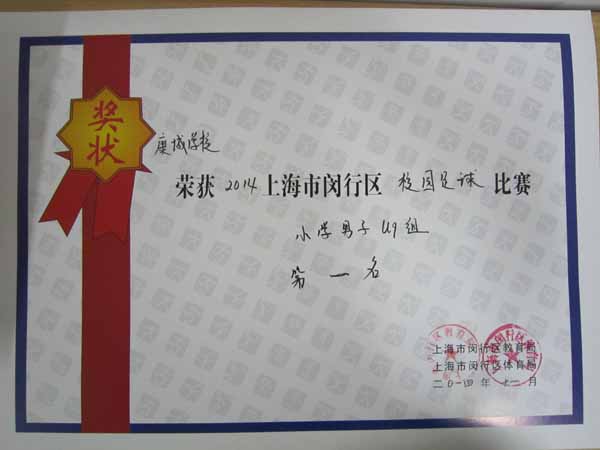 奖状
康城学校
荣获2014上海市闵行区校园足球比赛
小学男子U9组
第一名
上海市闵行区教育局
上海市闵行区体育局
二〇一四年十二月